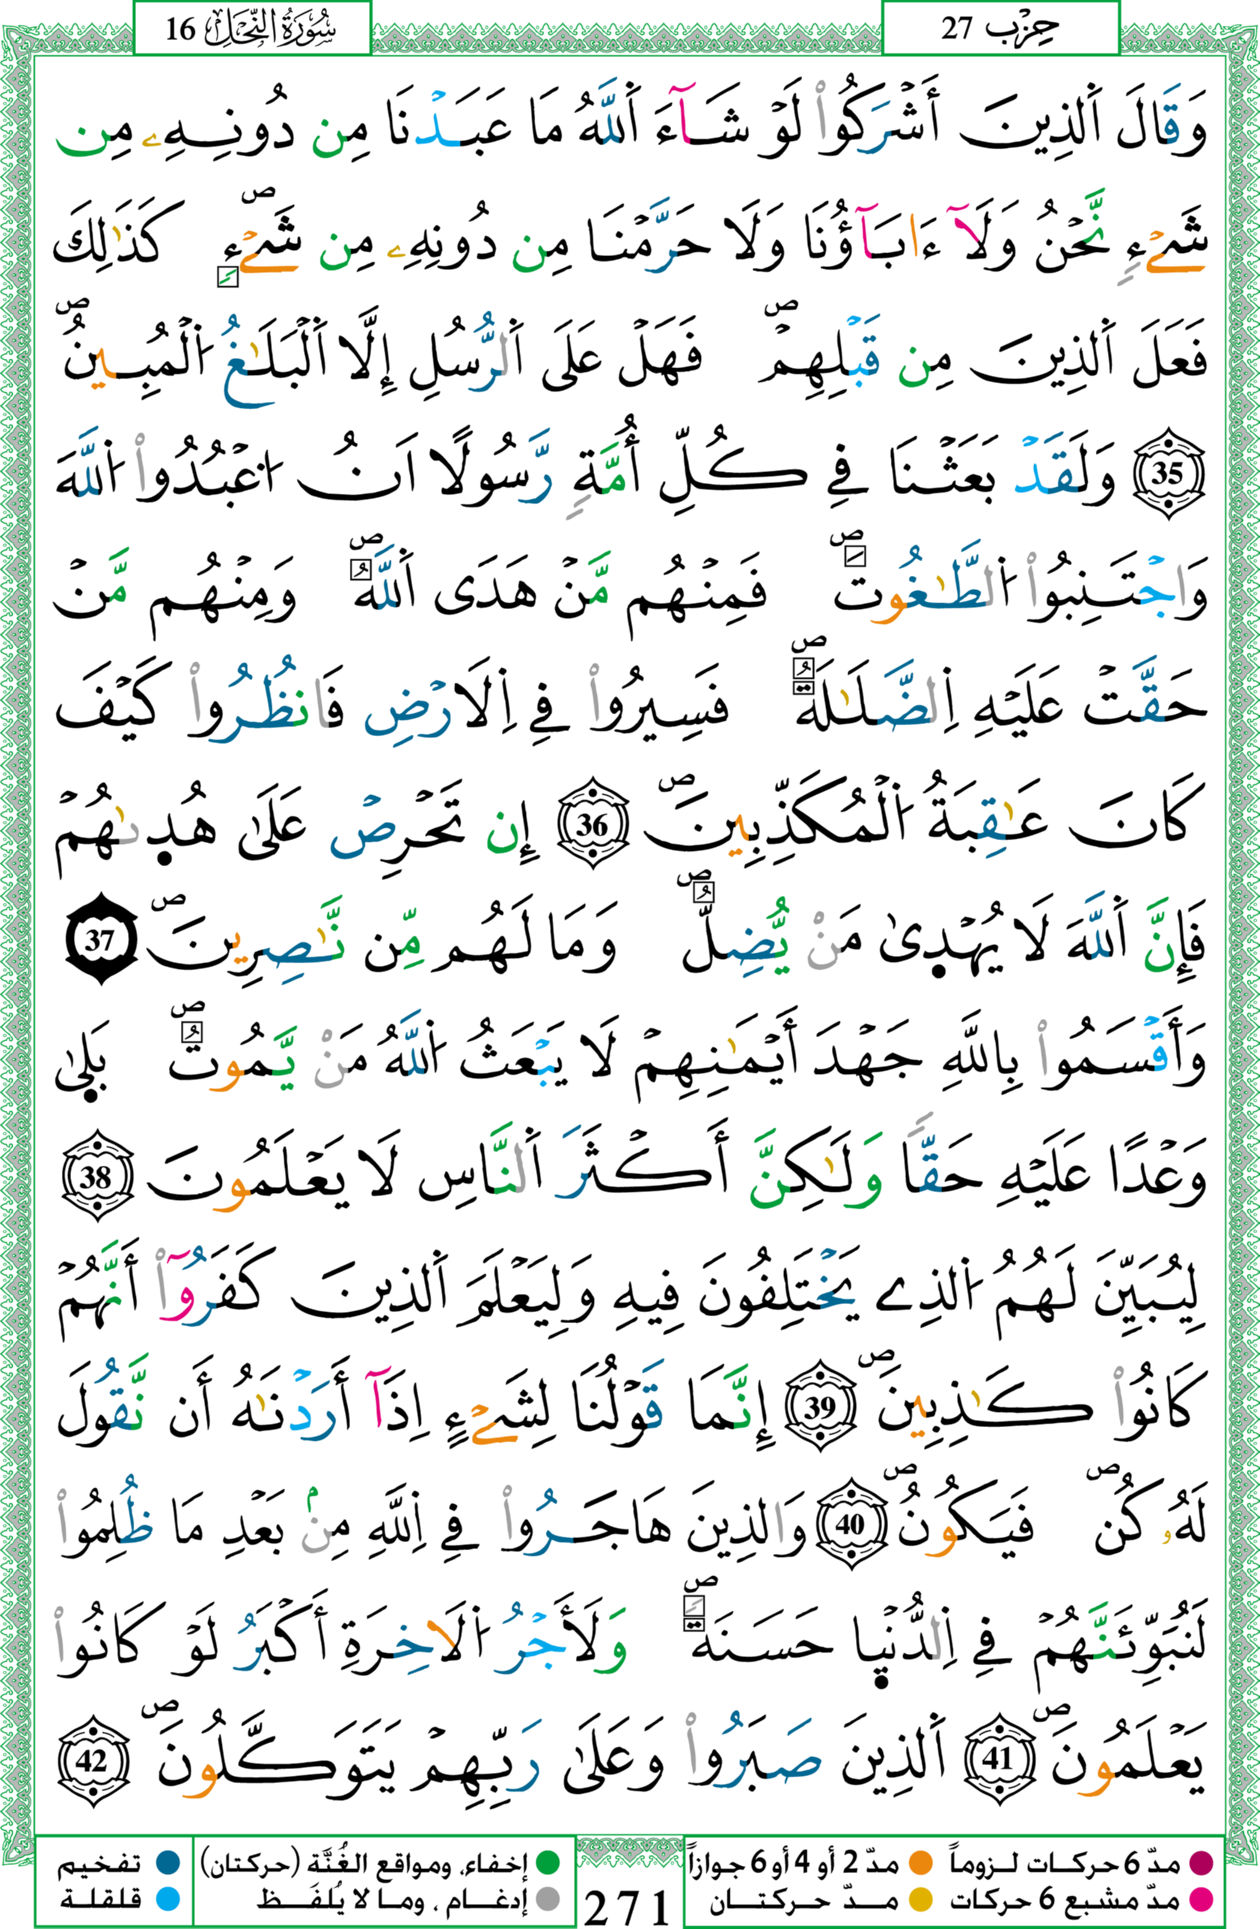 حِزْب 27
سُورَةُ النَّحْلِ 16
وَقَالَ اَ۬لذِينَ أَشْرَكُواْ لَوْ شَآءَ اَ۬للَّهُ مَا عَبَدْنَا مِن دُونِهِۦ مِن
شَےْءٖ نَّحْنُ وَلَآ ءَابَآؤُنَا وَلَا حَرَّمْنَا مِن دُونِهِۦ مِن شَےْءٖۖ كَذَٰلِكَ
فَعَلَ اَ۬لذِينَ مِن قَبْلِهِمْۖ فَهَلْ عَلَى اَ۬لرُّسُلِ إِلَّا اَ۬لْبَلَٰغُ اُ۬لْمُبِينُۖ
35 وَلَقَدْ بَعَثْنَا فِے كُلِّ أُمَّةٖ رَّسُولًا اَنُ اُ۟عْبُدُواْ اُ۬للَّهَ
وَاجْتَنِبُواْ اُ۬لطَّٰغُوتَۖ فَمِنْهُم مَّنْ هَدَى اَ۬للَّهُۖ وَمِنْهُم مَّنْ
حَقَّتْ عَلَيْهِ اِ۬لضَّلَٰلَةُۖ فَسِيرُواْ فِے اِ۬لَارْضِ فَانظُرُواْ كَيْفَ
كَانَ عَٰقِبَةُ اُ۬لْمُكَذِّبِينَۖ 36 إِن تَحْرِصْ عَلَىٰ هُد۪ىٰهُمْ
فَإِنَّ اَ۬للَّهَ لَا يُهْد۪ىٰ مَنْ يُّضِلُّۖ وَمَا لَهُم مِّن نَّٰصِرِينَۖ 37
وَأَقْسَمُواْ بِاللَّهِ جَهْدَ أَيْمَٰنِهِمْ لَا يَبْعَثُ اُ۬للَّهُ مَنْ يَّمُوتُۖ بَل۪ىٰ
وَعْدًا عَلَيْهِ حَقّٗا وَلَٰكِنَّ أَكْثَرَ اَ۬لنَّاسِ لَا يَعْلَمُونَ 38
لِيُبَيِّنَ لَهُمُ اُ۬لذِے يَخْتَلِفُونَ فِيهِ وَلِيَعْلَمَ اَ۬لذِينَ كَفَرُوٓاْ أَنَّهُمْ
كَانُواْ كَٰذِبِينَۖ 39 إِنَّمَا قَوْلُنَا لِشَےْءٍ اِذَآ أَرَدْنَٰهُ أَن نَّقُولَ
لَهُۥ كُنۖ فَيَكُونُۖ 40 وَالذِينَ هَاجَرُواْ فِے اِ۬للَّهِ مِنۢ بَعْدِ مَا ظُلِمُواْ
لَنُبَوِّئَنَّهُمْ فِے اِ۬لدُّنْي۪ا حَسَنَةٗۖ وَلَأَجْرُ اُ۬لَاخِرَةِ أَكْبَرُ لَوْ كَانُواْ
يَعْلَمُونَۖ 41 اَ۬لذِينَ صَبَرُواْ وَعَلَىٰ رَبِّهِمْ يَتَوَكَّلُونَۖ 42
مدّ 6 حركات لـزوماً
مدّ 2 أو 4 أو 6 جوازاً
إخفاء، ومواقع الغُنَّة (حركتان)
تفخيم
مدّ مشبع 6 حركات
مدّ حركتان
إدغام ، وما لا يُلفَظ
قلقلة
271